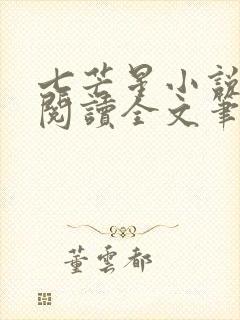 七芒星小說
閱讀全文筆
董雲都